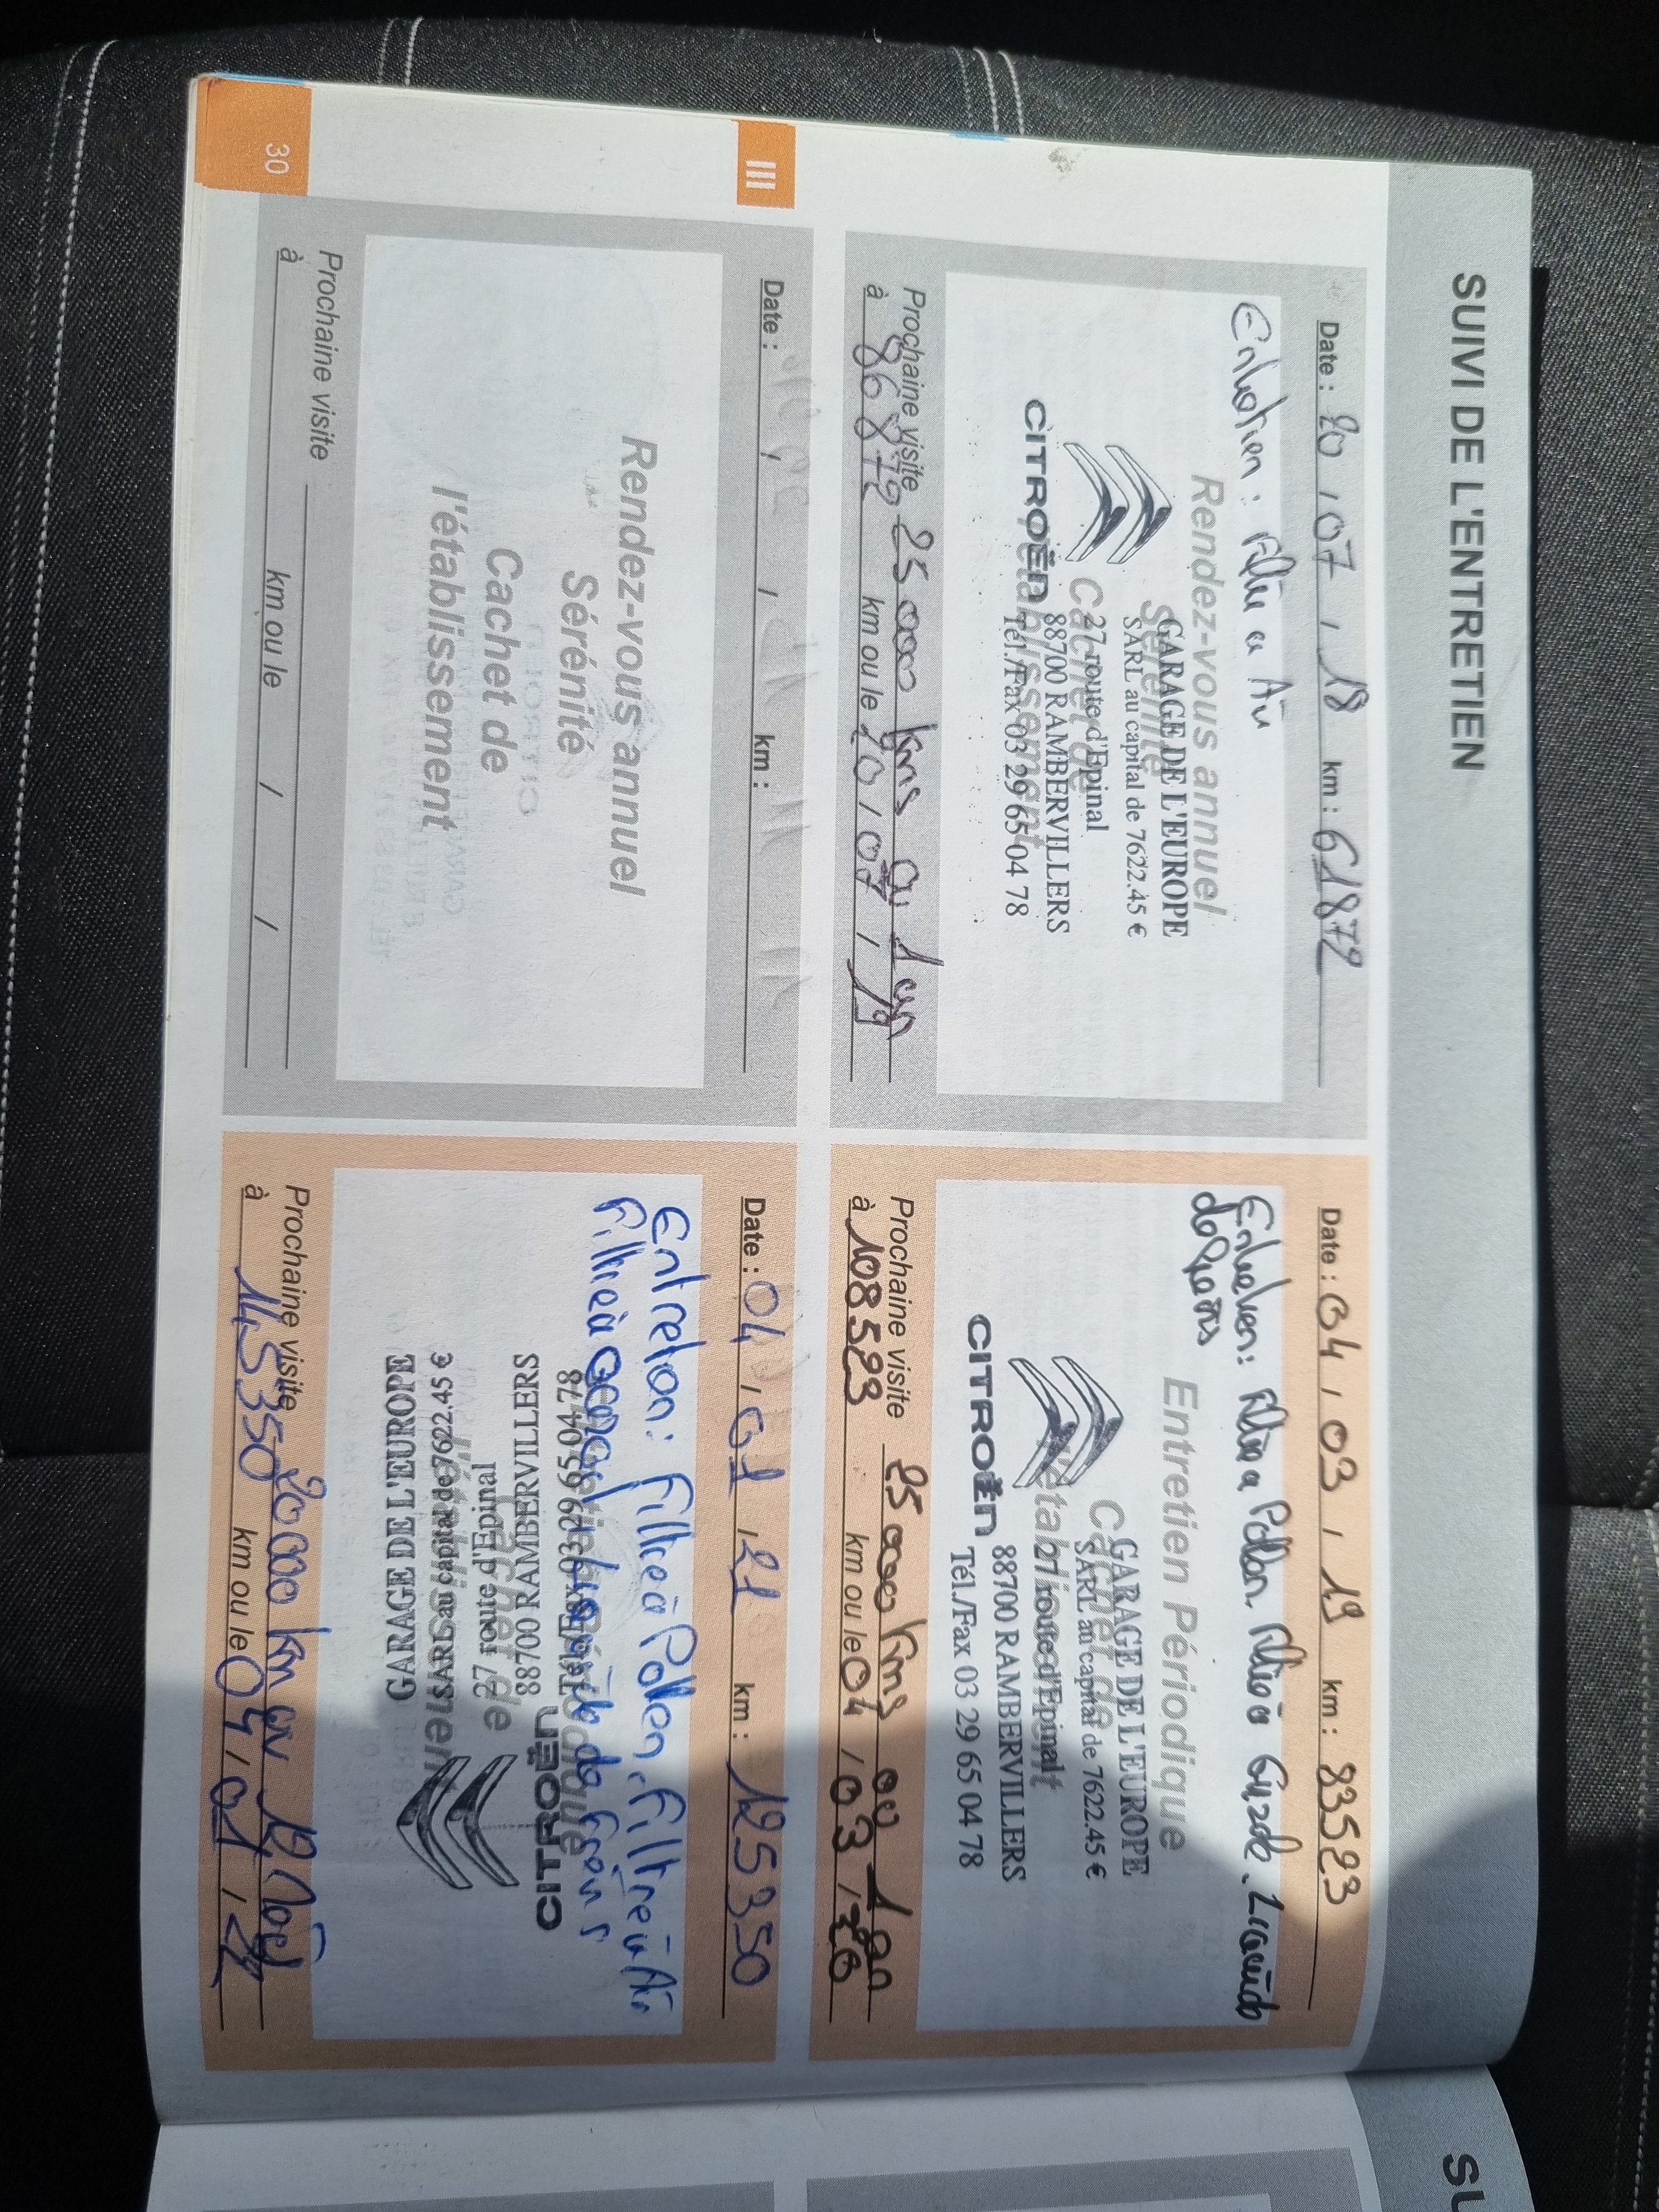 SUIVI DE L'ENTRETIEN
Date : 20 / 07 / 18 km : 61872
Rendez-vous annuel
Sérénité
Cachet de
l'établissement
Entretien : Filtre a Air
GARAGE DE L'EUROPE
SARL au capital de 7622.45 €
27 route d'Epinal
88700 RAMBERVILLERS
Tél./Fax 03 29 65 04 78
CITROËN
Prochaine visite 25 000 kms ou 1 an
à 86872 km ou le 20 / 07 / 19
Date : 04 / 03 / 19 km : 83523
Entretien Périodique
Cachet de
l'établissement
Entretien : Filtre a Pollen. Filtre à Gazole. Liquide
de freins
GARAGE DE L'EUROPE
SARL au capital de 7622.45 €
27 route d'Epinal
88700 RAMBERVILLERS
Tél./Fax 03 29 65 04 78
CITROËN
Prochaine visite 25 000 kms ou 1 an
à 108523 km ou le 04 / 03 / 20
III
Date : / / km :
Rendez-vous annuel
Sérénité
Cachet de
l'établissement
Prochaine visite
à km ou le / /
Date : 04 / 01 / 21 km : 125350
Entretien : Filtre à Pollen, Filtre à Air
Filtre à GO, Liquide de freins
CITROËN
Tél./Fax 03 29 65 04 78
88700 RAMBERVILLERS
27 route d'Epinal
SARL au capital de 7622.45 €
GARAGE DE L'EUROPE
Prochaine visite 20 000 km ou 12 Mois
à 145350 km ou le 04 / 01 / 22
30
SU